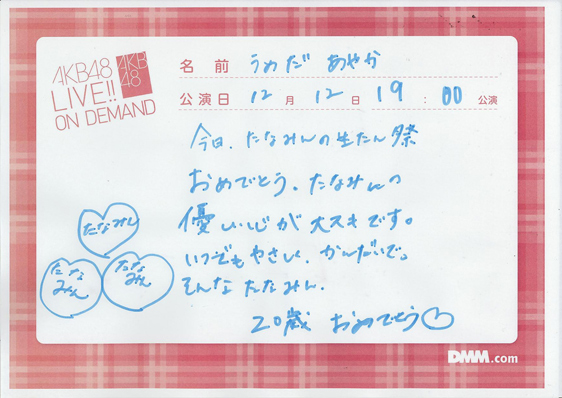 AKB48
LIVE!!
ON DEMAND
AKB
48
名前 うめだ あやか
公演日 12月12日 19:00公演
今日、たなみんの生たん祭
おめでとう。たなみんの
優しい心が大スキです。
いつでもやさしく、かんだいで。
そんなたなみん、
20歳 おめでとう
たなみん
たなみん
たなみん
DMM.com